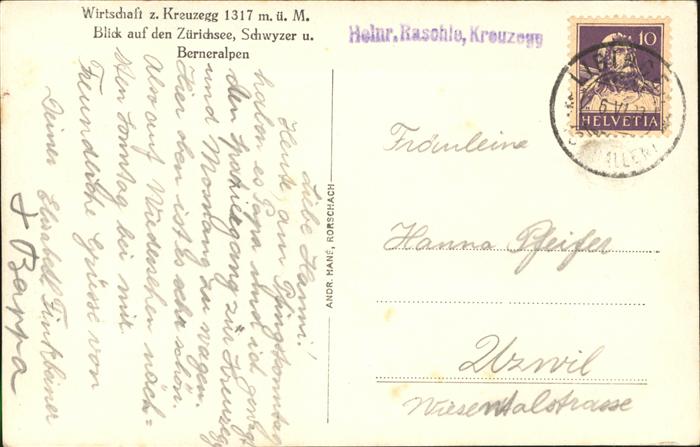 Wirtschaft z. Kreuzegg 1317 m. ü. M.
Blick auf den Zürichsee, Schwyzer u.
Berneralpen
Heinr. Raschle, Kreuzegg
10
HELVETIA
Liebe Hanni!
Heute, am Pfingstsonntag
haben es Papa und ich gewagt
den Spaziergang zur Kreuzegg
und Montag zu wagen.
Hier oben ist es sehr schön.
Also auf Wiedersehen näch=
sten Sonntag bei mir
Freundliche Grüsse von
Deiner Elisabeth
+ Bappa
ANDR. HANE, RORSCHACH
Fräulein
Hanna Pfeifer
Uzwil
Wiesentalstrasse